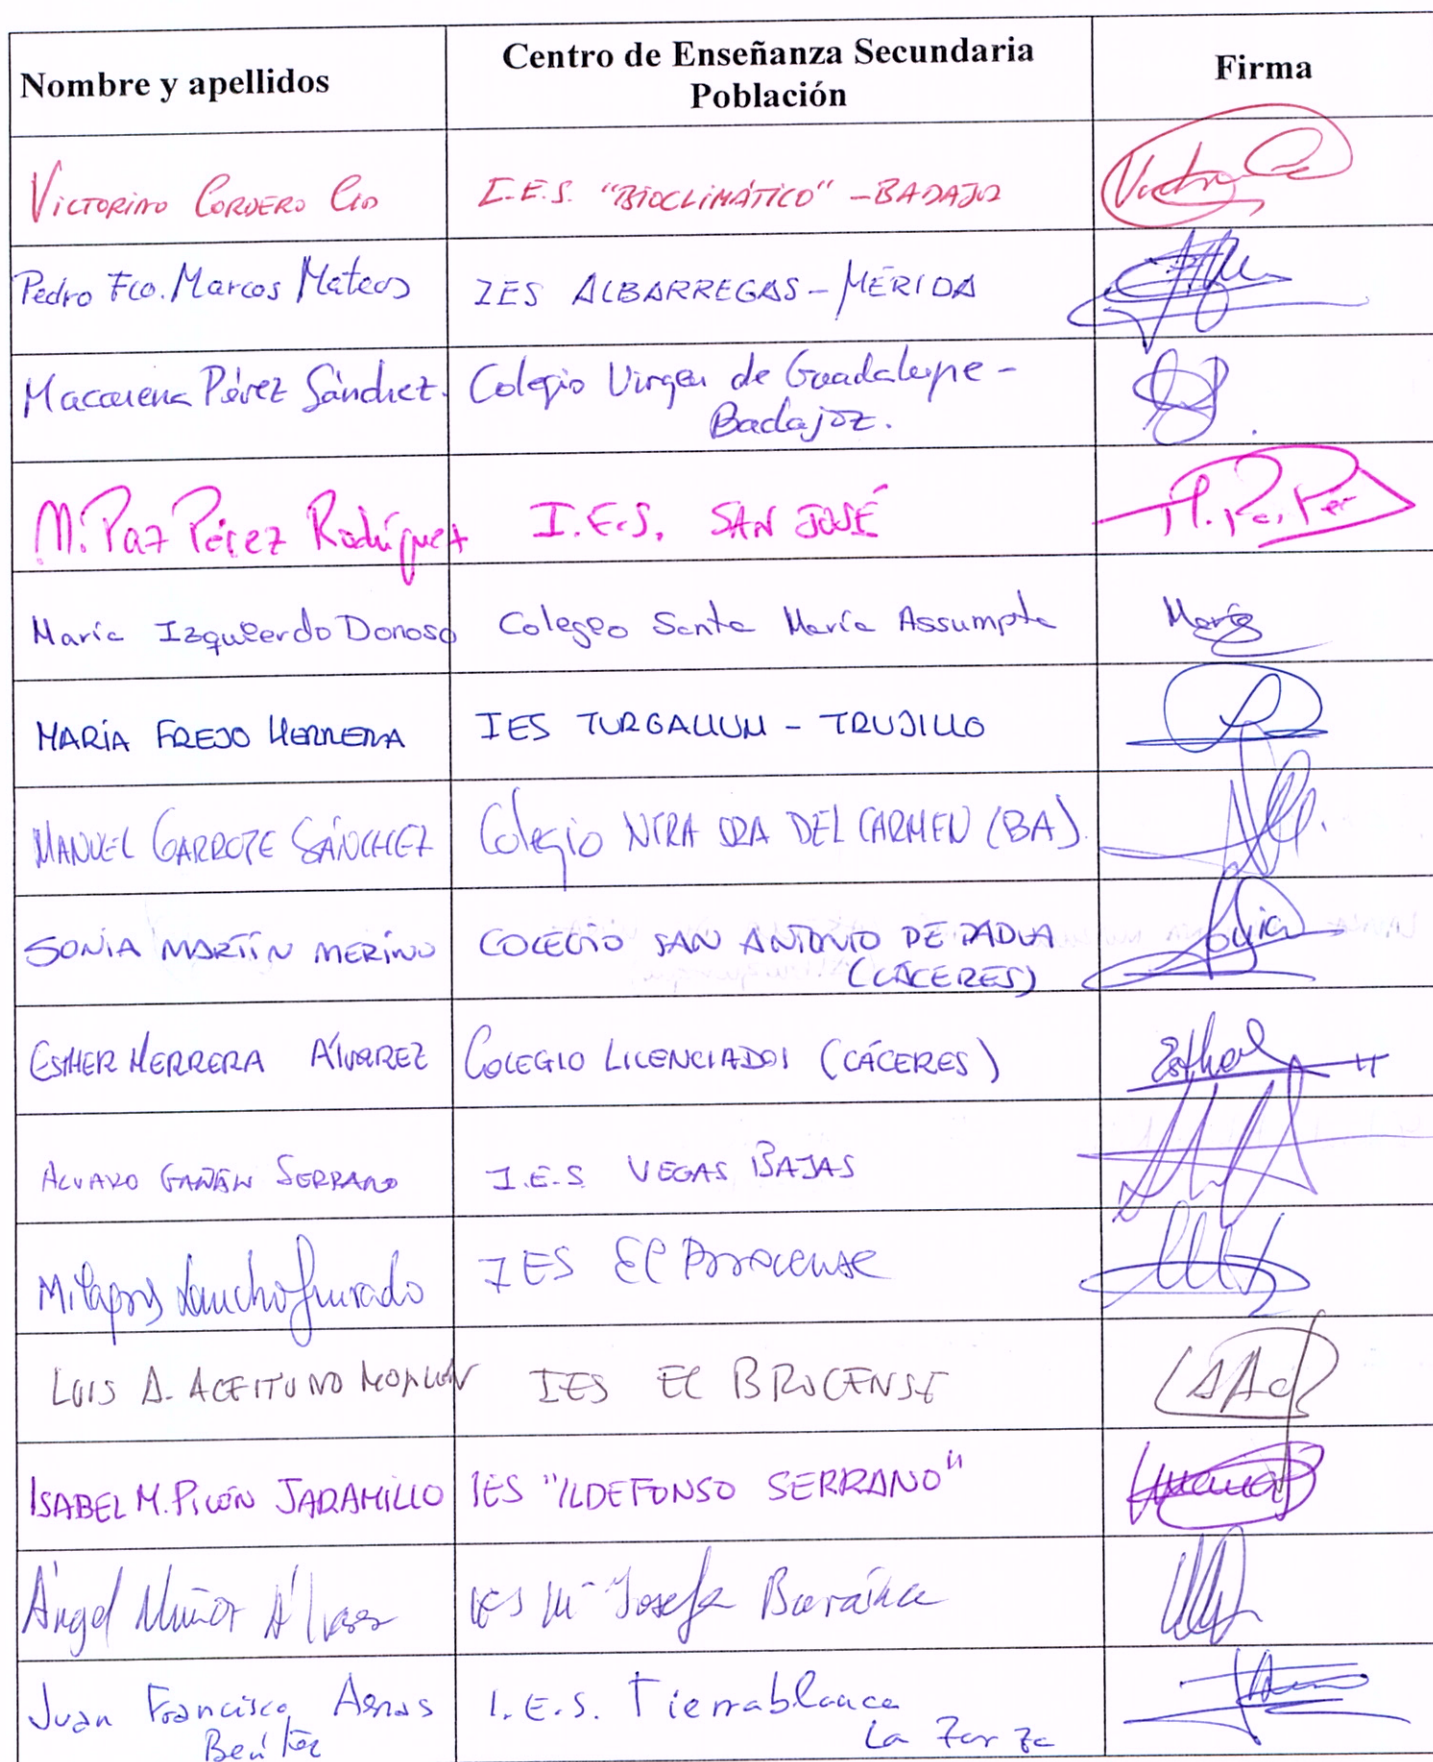 Nombre y apellidos
Centro de Enseñanza Secundaria
Población
Firma
VICTORINO CORDERO CID
I.E.S. "BIOCLIMÁTICO" - BADAJOZ
Pedro Fco. Marcos Mateos
IES ALBARREGAS - MÉRIDA
Macarena Pérez Sánchez.
Colegio Virgen de Guadalupe -
Badajoz.
M. Paz Pérez Rodríguez
I.E.S. SAN JOSÉ
María Izquierdo Donoso
Colegio Santa María Assumpta
María
MARÍA FREJO HERRERA
IES TURGALIUM - TRUJILLO
MANUEL GARROTE SÁNCHEZ
Colegio NTRA SRA DEL CARMEN (BA).
SONIA MARTÍN MERINO
COLEGIO SAN ANTONIO DE PADUA
(CÁCERES)
ESTHER HERRERA ÁLVAREZ
COLEGIO LICENCIADOS (CÁCERES)
Esther
ALVARO GAÑÁN SERRANO
I.E.S VEGAS BAJAS
Milagros Sancho Jurado
IES El Brocense
LUIS A. ACEITUNO
IES EL BROCENSE
ISABEL M. PILÓN JARAMILLO
IES "ILDEFONSO SERRANO"
Ángel Muñoz Álvarez
IES Mª Josefa Baraínca
Juan Francisco Arnas
Benítez
I.E.S. Tierrablanca
La Zarza